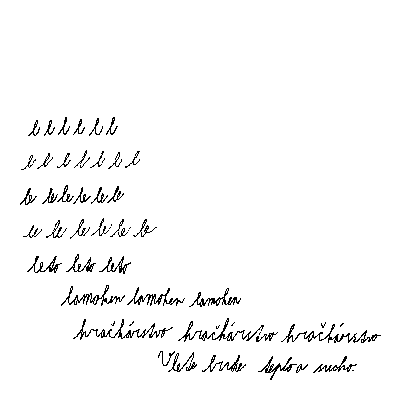 l l l l l l
l l l l l l l
le le le le le le
le le le le le le
leto leto leto
lamohen lamohen lamohen
hračkárstvo hračkárstvo hračkárstvo
V lete bude teplo a sucho.